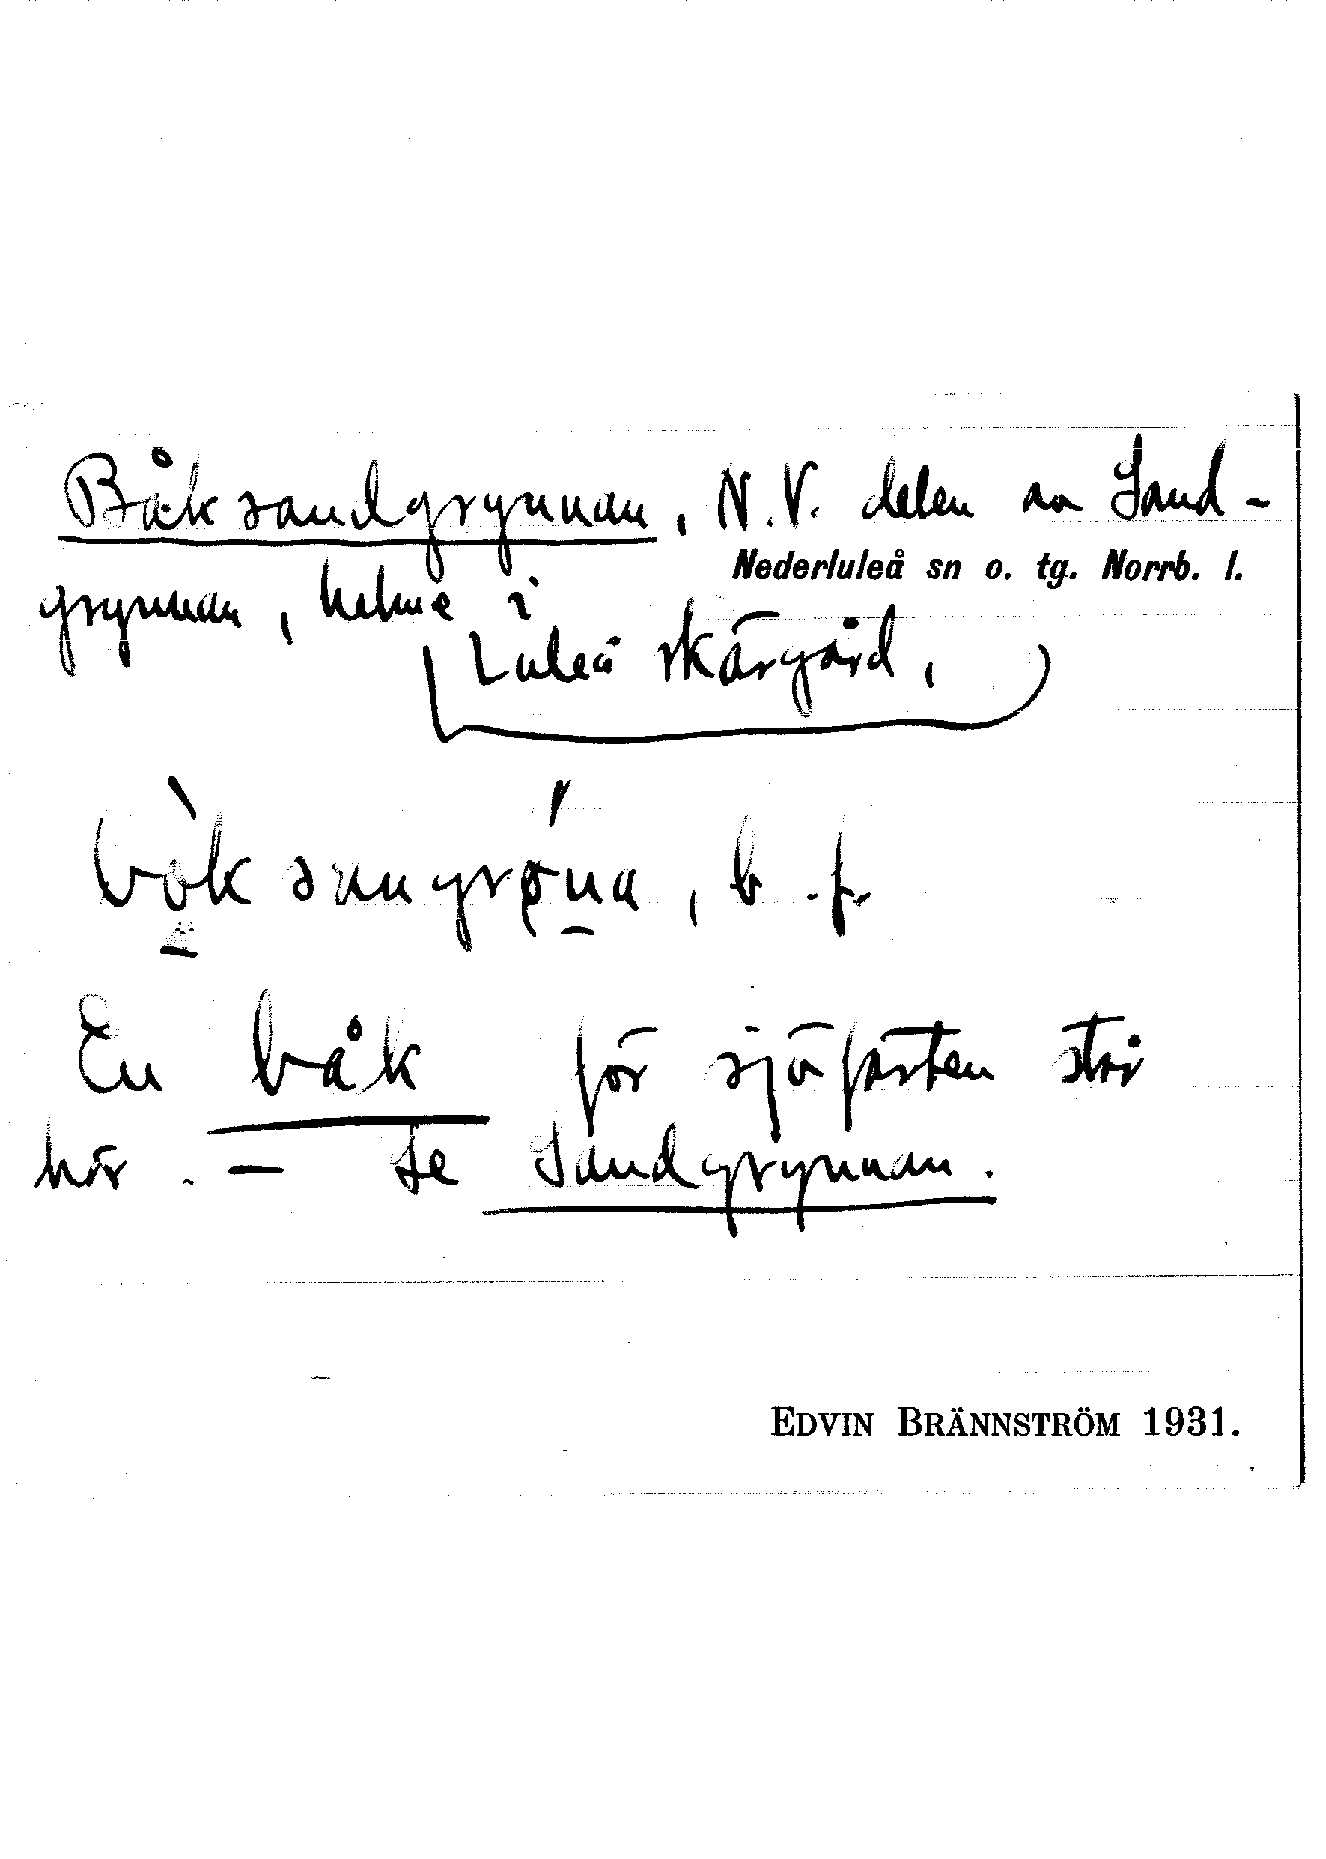 Båksandgrynnan, N.V. delen av Sand-
Nederluleå sn o. tg. Norrb. l.
grynnan, holme i
Luleå skärgård,
b. f.
En båk för sjöfarten står
här. — Se Sandgrynnan.
EDVIN BRÄNNSTRÖM 1931.